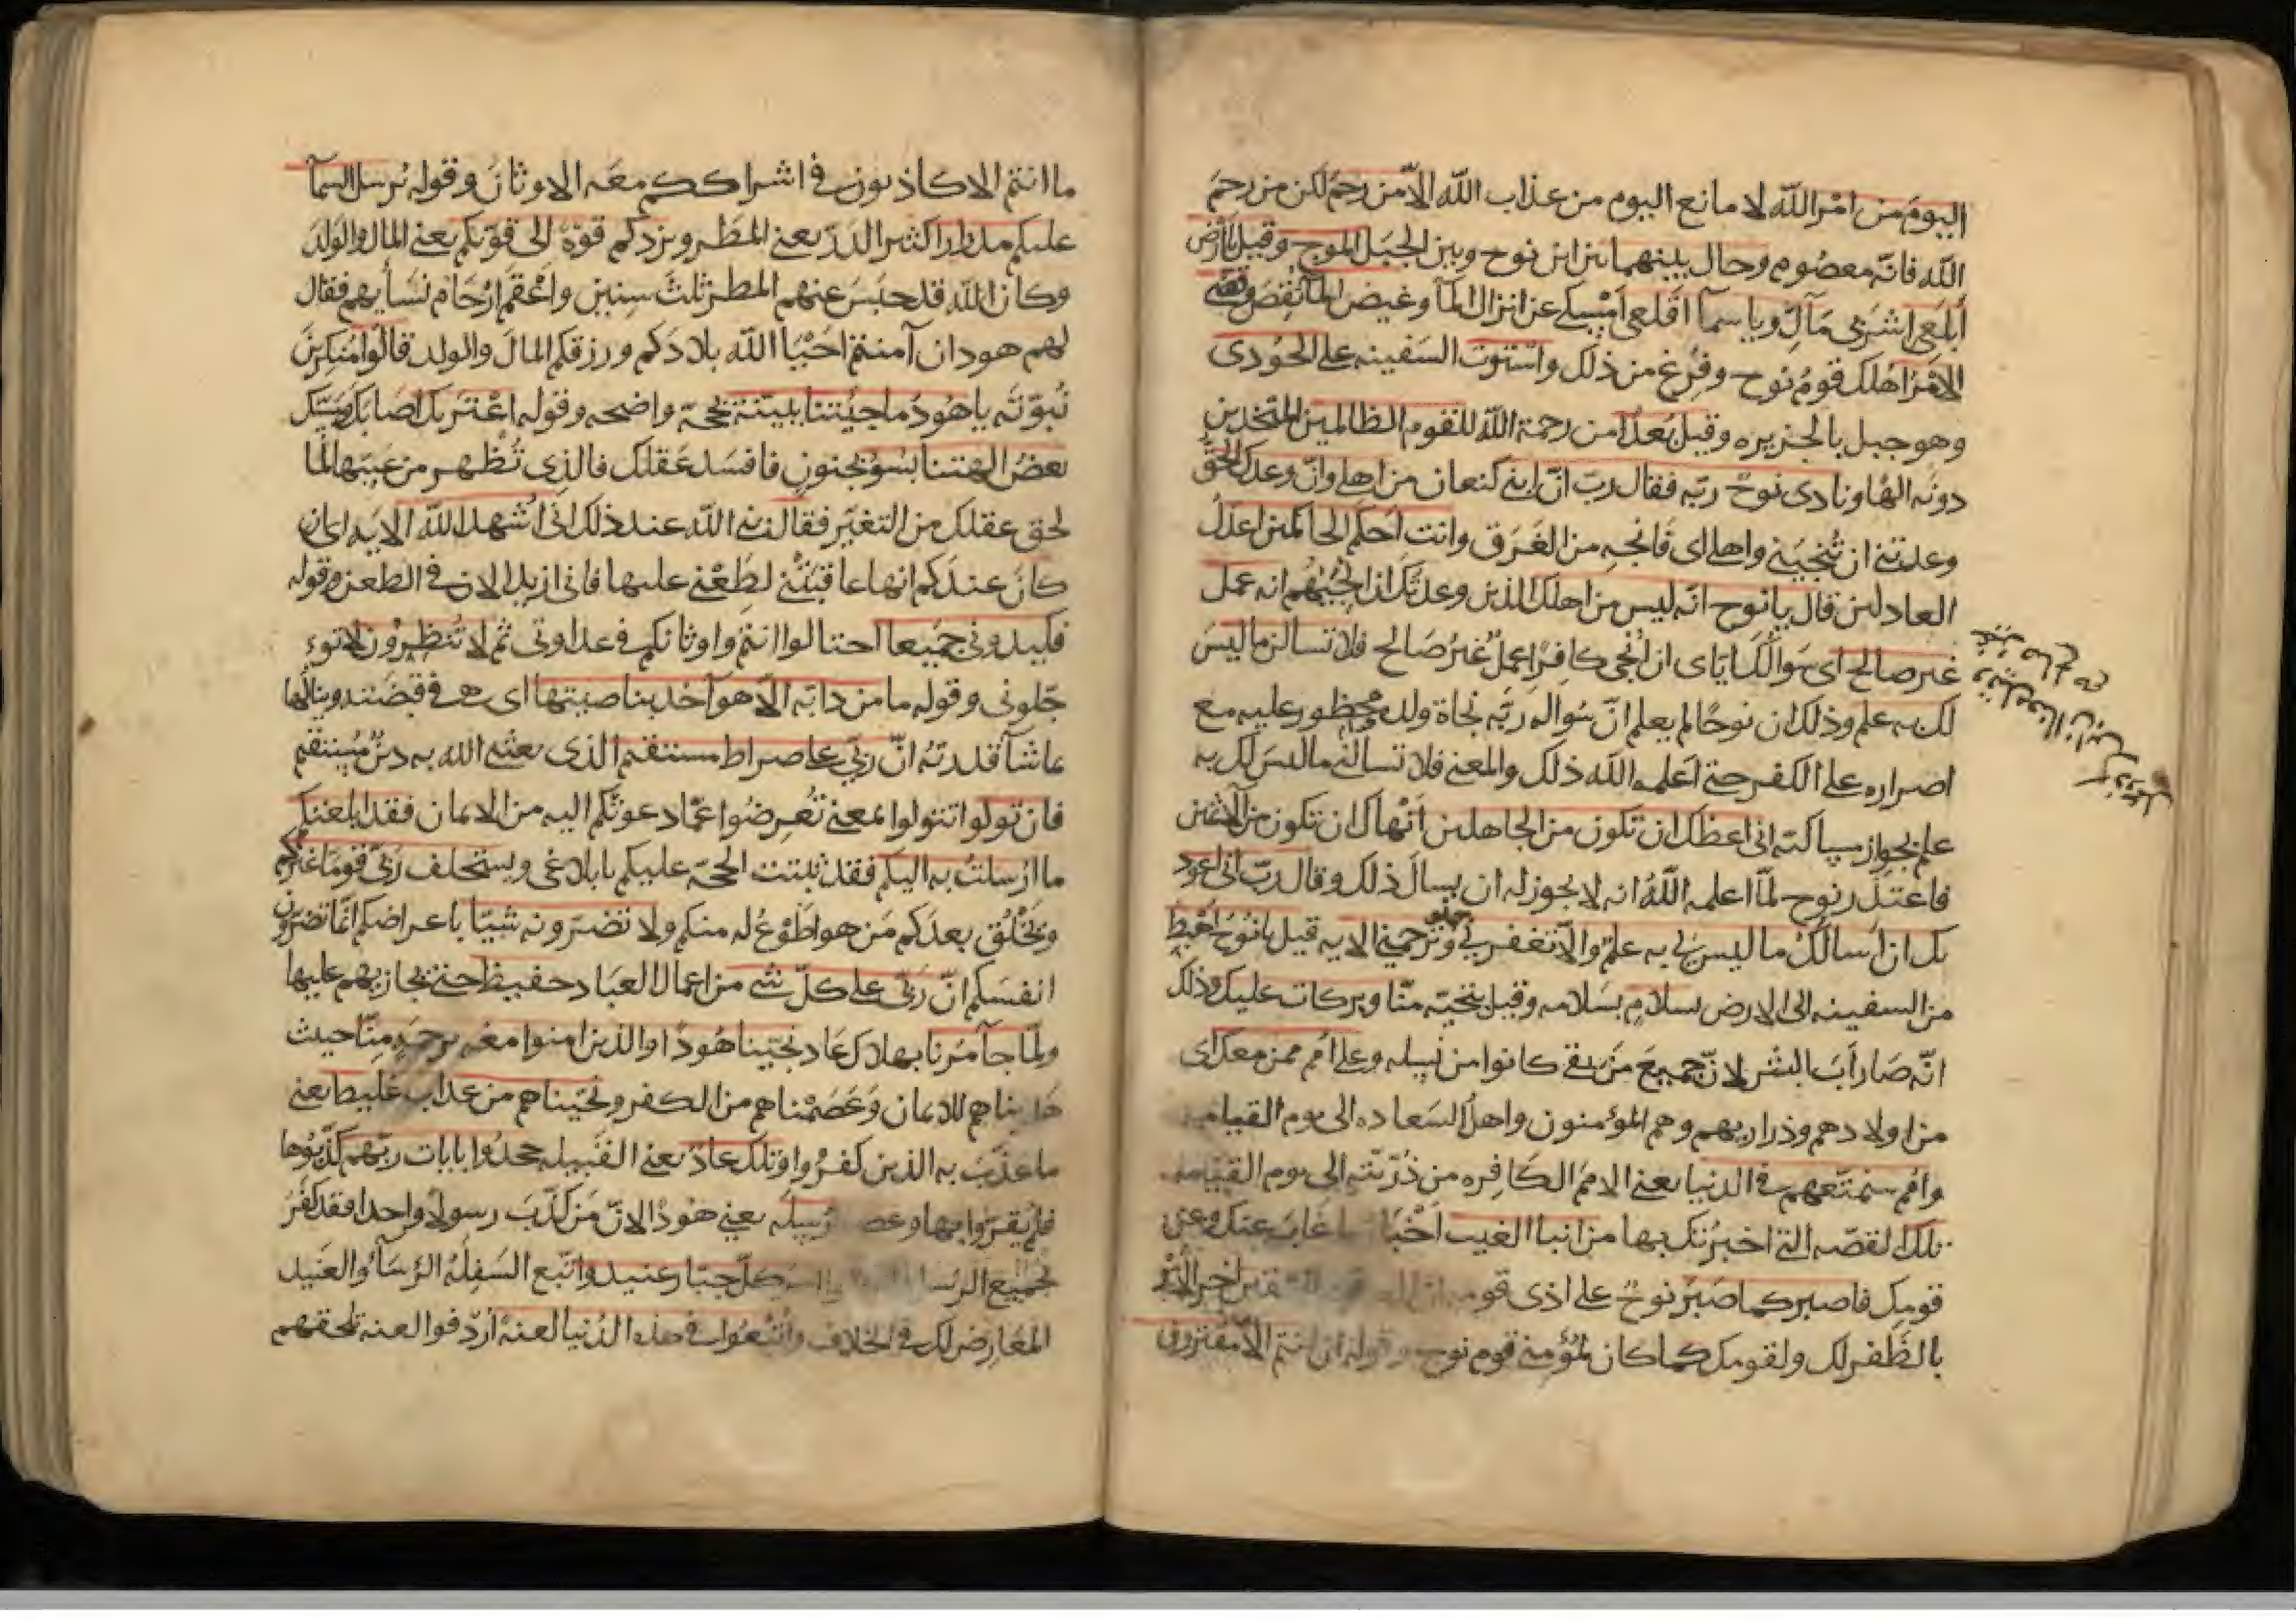 اليومَ من امْر الله لا مانع اليوم من عذاب الله الاّ من رحمَ لكن من رحمَ
الله فانّه معصوم وحال بينهما بين ابن نوح وبين الجبَل الموج وقيل يا ارْض
ابلَعى اشرَبى مَآكِ ويا سمآ اقلعى امْسِكى عن انزال المآ وغيض المآ نقِصَ وقضى
الامْرُ اهْلك قومُ نوح وفرُغ من ذلك واستوت السفينه على الجُودى
وهو جبل بالجزيره وقيل بُعدًا من رحمة الله للقوم الظالمين المتّخذين
دونَه الهًا ونادى نوحٌ ربّه فقال ربّ انّ ابنى كنعان من اهلى وانّ وعدك الحقّ
وعدتنى ان تُنجيَنى واهلى اى فانْجِهِ من الغَرَق وانت احكم الحاكمين اعدَلُ
العادلين قال يا نوح انّه ليس من اهلك الذين وعدتّك ان انجيَهُم انه عمل
غير صالح اى سَوالُكَ ايّاى ان اُنجى كافِرًا عملٌ غيرُ صَالح فلا تسالن ما ليسَ
لك به علم وذلك ان نوحًا لم يعلم انّ سُواله ربّه نجاة ولده محظور عليه مع
اصراره على الكفر حتى اعلمه الله ذلك والمعنى فلا تسالنى ما ليسَ لك به
علم بجواز مسالته انى اعظك ان تكون من الجاهلين اَنْهاك ان تكون من الآثمين
فاعتذر نوح لمّا اعلمه اللهُ انه لا يجوز له ان يسالَ ذلك وقال ربّ انى اعوذ
بك ان اسالكَ ما ليس لى به علم والّا تغفر لى وترحمنى الايه قيل يا نُوح اهْبِط
من السفينه الى الارض بسلامٍ بسَلامه وقيل بتحيّه منّا وبركات عليك وذلك
انّه صَار اَبَ البشَر لانّ جميعَ مَن بقى كانوا من نَسِله وعلى امم ممن معك اى
من اولادهم وذراريهم وهم المؤمنون واهلُ السَعاده الى يوم القيامه
وامم سنمتّعهم فى الدنيا يعنى الامَم الكَافِره من ذُرّيّته الى يوم القيامه
تلك القصّه التى اخبرتك بها من انبا الغيب اخْبَار ما غابَ عنك وعن
قومِك فاصبر كما صَبَرَ نوحٌ على اذى قومه
بالظَفر لك ولقومك كما كان لمؤمنى قوم نوح وقوله ان انتم الّا مفترون
ما انتم الا كاذبون فى اشراككم معَه الاوثانَ وقوله يُرسل السمآ
عليكم مدرارا كثير الدَرّ يعنى المطَر ويزدكم قوّةً الى قوّتكم يعنى المال والولَدَ
وكان الله قد حبَسَ عنهم المطر ثلثَ سِنين واعْقَمَ ارْحَام نسَآيهم فقال
لهم هود ان آمنتم احْيَا الله بلادكم ورزقكم المالَ والولد قالُوا مُنكِرينَ
نُبوّته يا هُودُ ما جئتنا ببيّنة بحُجّة واضحه وقوله اعْتَريك اصَابك ومَسّك
بعضُ الهتنا بسُوءٍ بجنونٍ فافسَد عَقلك فالذى تُظهر من عَيبها لما
لحق عقلك من التغيّر فقال نبى الله عند ذلك انّى اُشهد الله الايه اى ان
كانَ عندكم انها عاقبَتْنى لِطَعْنى عليها فانى ازيد الان فى الطعن وقوله
فكيدونى جميعا احتالوا انتم واوثانكم فى عداوتى ثم لا تُنظِرُون لا توء
جّلونى وقوله ما من دابّه الّا هو آخذ بناصيتها اى هى فى قبضَته وينالُها
بما شآ قدرتُهُ انّ ربّى على صراط مستقيم الذى بعثه الله به دينٌ مُستقيم
فان تولّوا تتولوا بمعنى تُعِرضُوا عمّا دعوتكم اليه من الايمان فقد ابلغتكم
ما ارْسِلتُ به اليكم فقد ثبتت الحجّه عليكم بابلاغى ويستخلف ربّى قوما غيْركم
ويَخْلُق بعدَكم مَن هو اطْوَعُ له منكم ولا تضرّونه شيئًا باعراضكم انّما تضرّون
انفسَكم انّ ربّى على كلّ شى من اعمال العبَاد حفيظ حتى يجازيهم عليها
ولمّا جآ امْرنا بهلاك عَاد نجّينا هُودًا والذين امنوا معه برحمةٍ مِنّا حيث
هديناهم للايمان وعَصَمْناهم من الكفر ونجّيناهم من عذاب غليظ يعنى
ما عذّبَ به الذين كفرُوا وتلك عادٌ يعنى القبيله جحدُوا بايات ربّهم كذّبُوها
فلم يُقرّوا بها وعصوا رُسلَه يعنى هُودًا لانّ مَن كذّبَ رسولًا واحدا فقد كفَرَ
بجميع الرسل كلّ جبّار عنيد واتّبع السَفِلَهُ الرُسَآءَ والعَنيد
المعَارض لك فى الخلاف واُتبعُوا فى هذه الدُنيا لعنةً ارْدِفوا لعنه تلحقهم